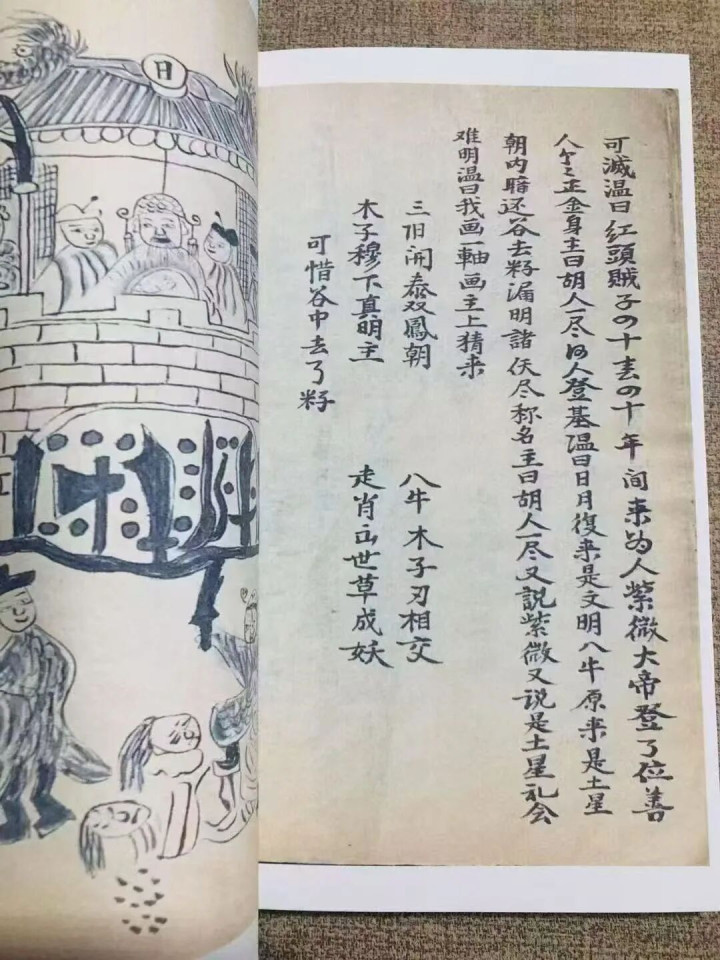 可滅温曰紅頭賊子の十去の十年间来为人紫微大帝登了位善
人々正金身主曰胡人一尽为人登基温曰日月復来是文明八牛原来是土星
朝内暗还谷去籽漏明諸仸尽称名主曰胡人一尽又説紫微又说是土星礼会
难明温曰我画一軸画主上猜来
三旧開泰双鳳朝 八牛木子刃相交
木子穆下真明主 走肖出世草成妖
可惜谷中去了籽
日